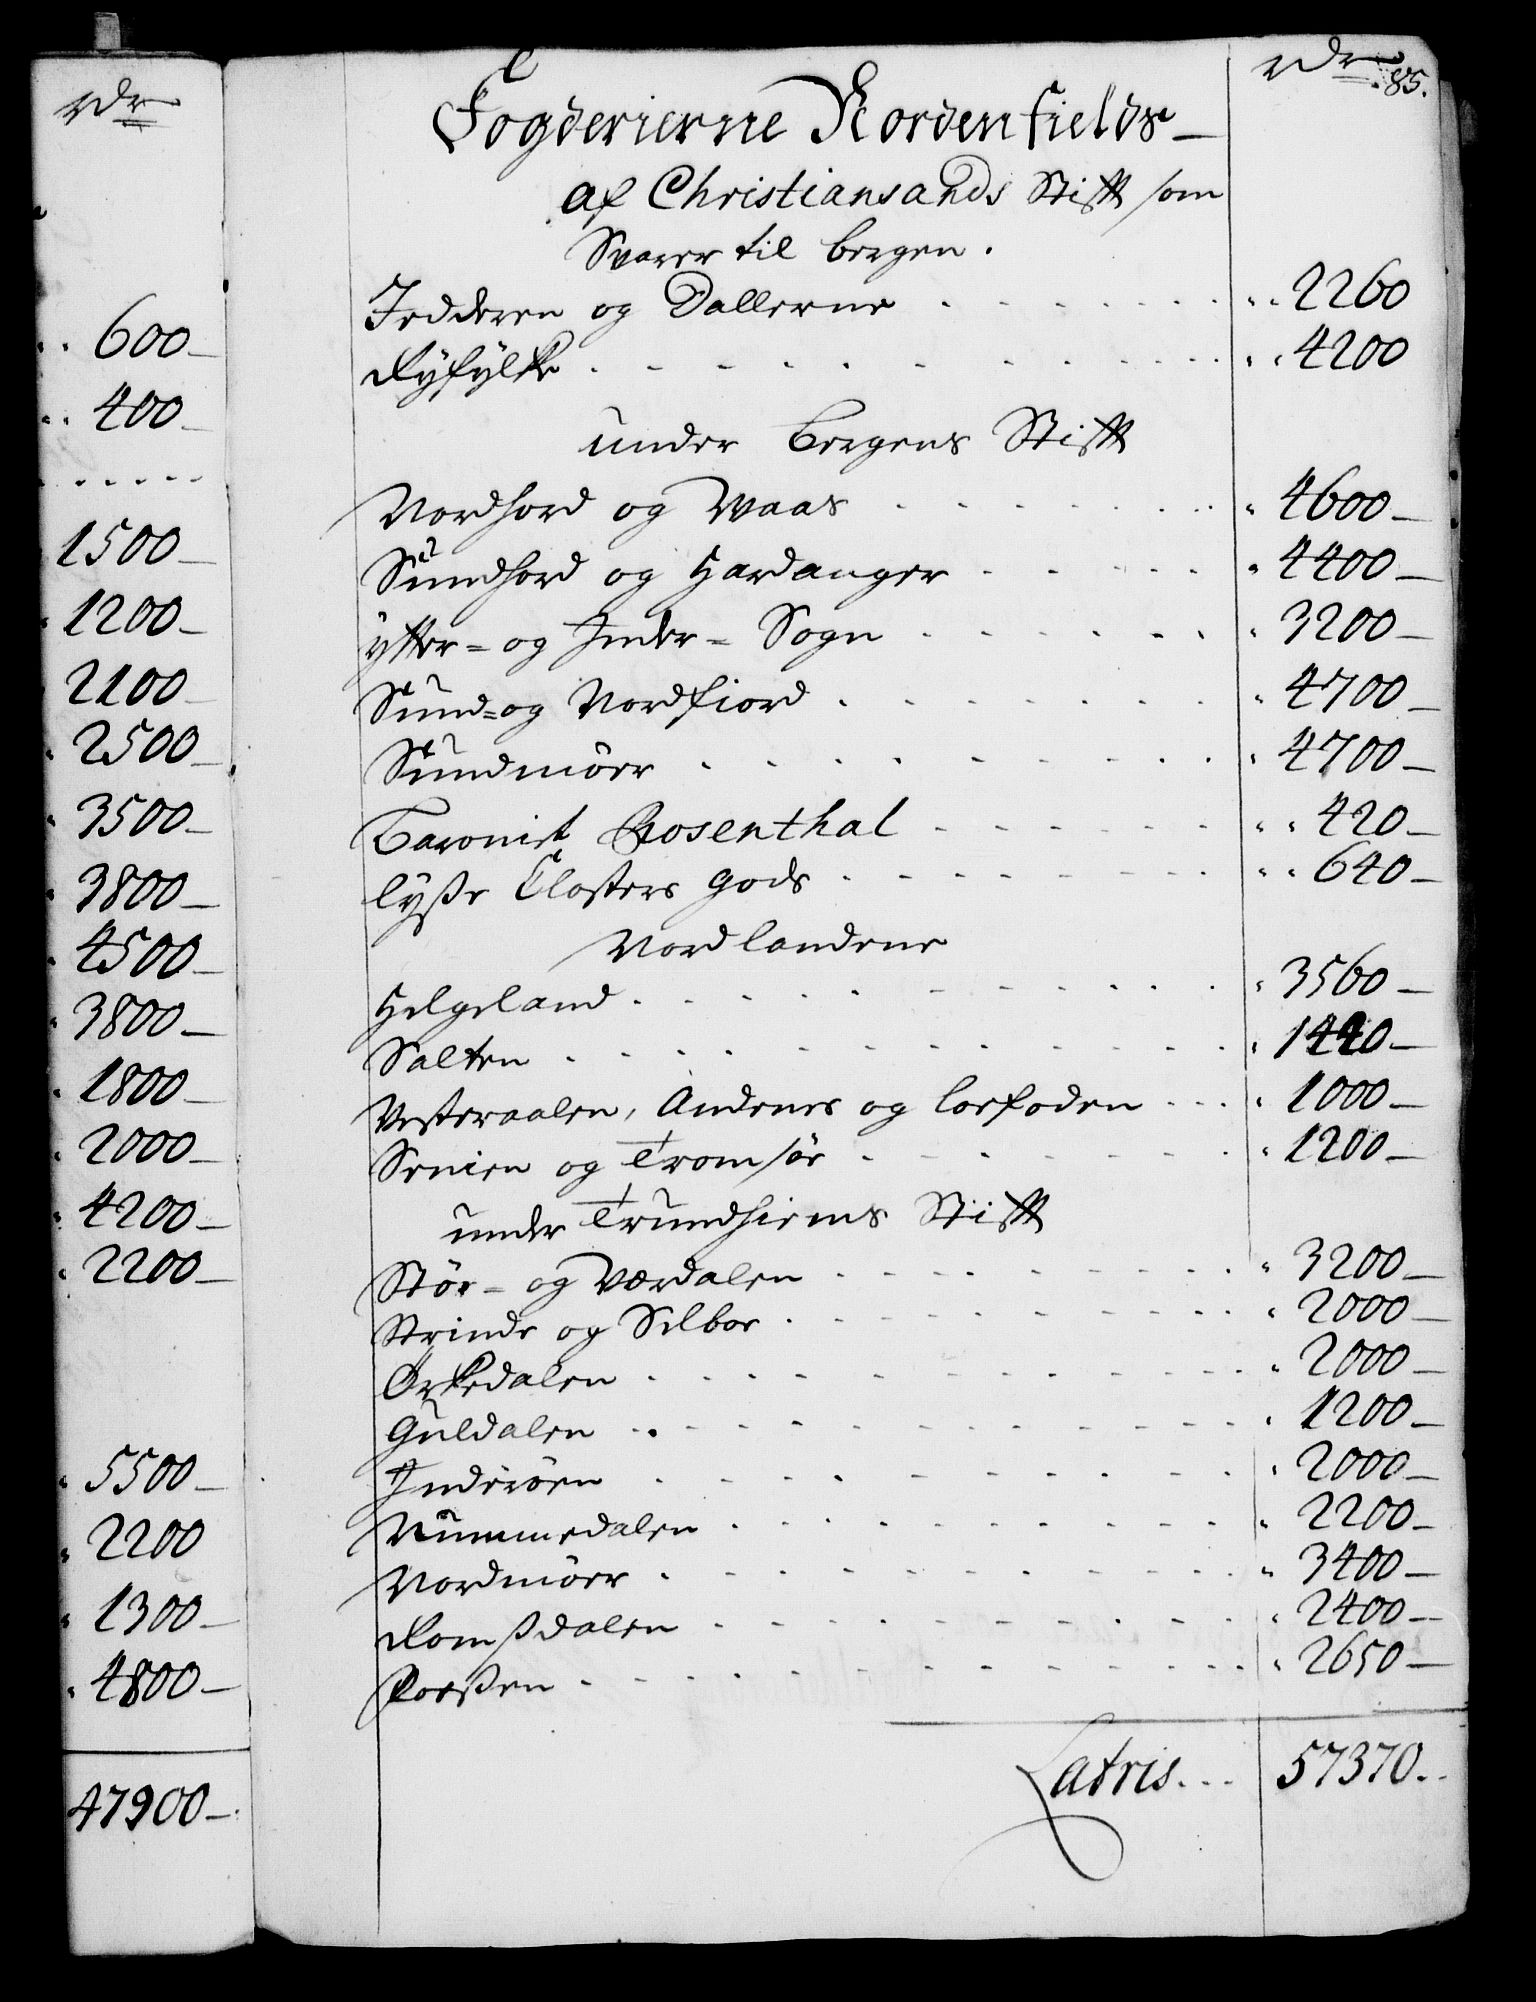 rdr
600-
400-
1500-
1200-
2100-
2500-
3500-
3800-
4500-
3800-
1800-
2000-
4200-
2200-
5500-
2200
1300-
4800-
47900-
rdr 85.
Fogderierne Nordenfields-
af Christiansands Stifft som
Svarer til bergen.
Jedderen og Dallerne 2260
Ryfylke 4200
under Bergens Stifft
Nordhord og Waas 4600-
Sundhord og Hardanger 4400-
ytter= og Inder= Sogn 3200-
Sund= og Nordfiord 4700-
Sundmöer 4700-
Baroniet Rosenthal 420-
lyße Closters gods 640-
Nordlandene
Helgeland 3560-
Salten 1440-
Vesteraalen, Andenes og loefoden 1000-
Senien og Tromsöe 1200-
under Trundhiems Stifft
Stör= og Værdalen 3200-
Strinde og Selboe 2000-
Örkedalen 2000-
Guldalen 1200-
Inderöen 2000-
Nummedalen 2200-
Nordmöer 3400-
Romßdalen 2400-
Foeßen 2650-
Latris 57370